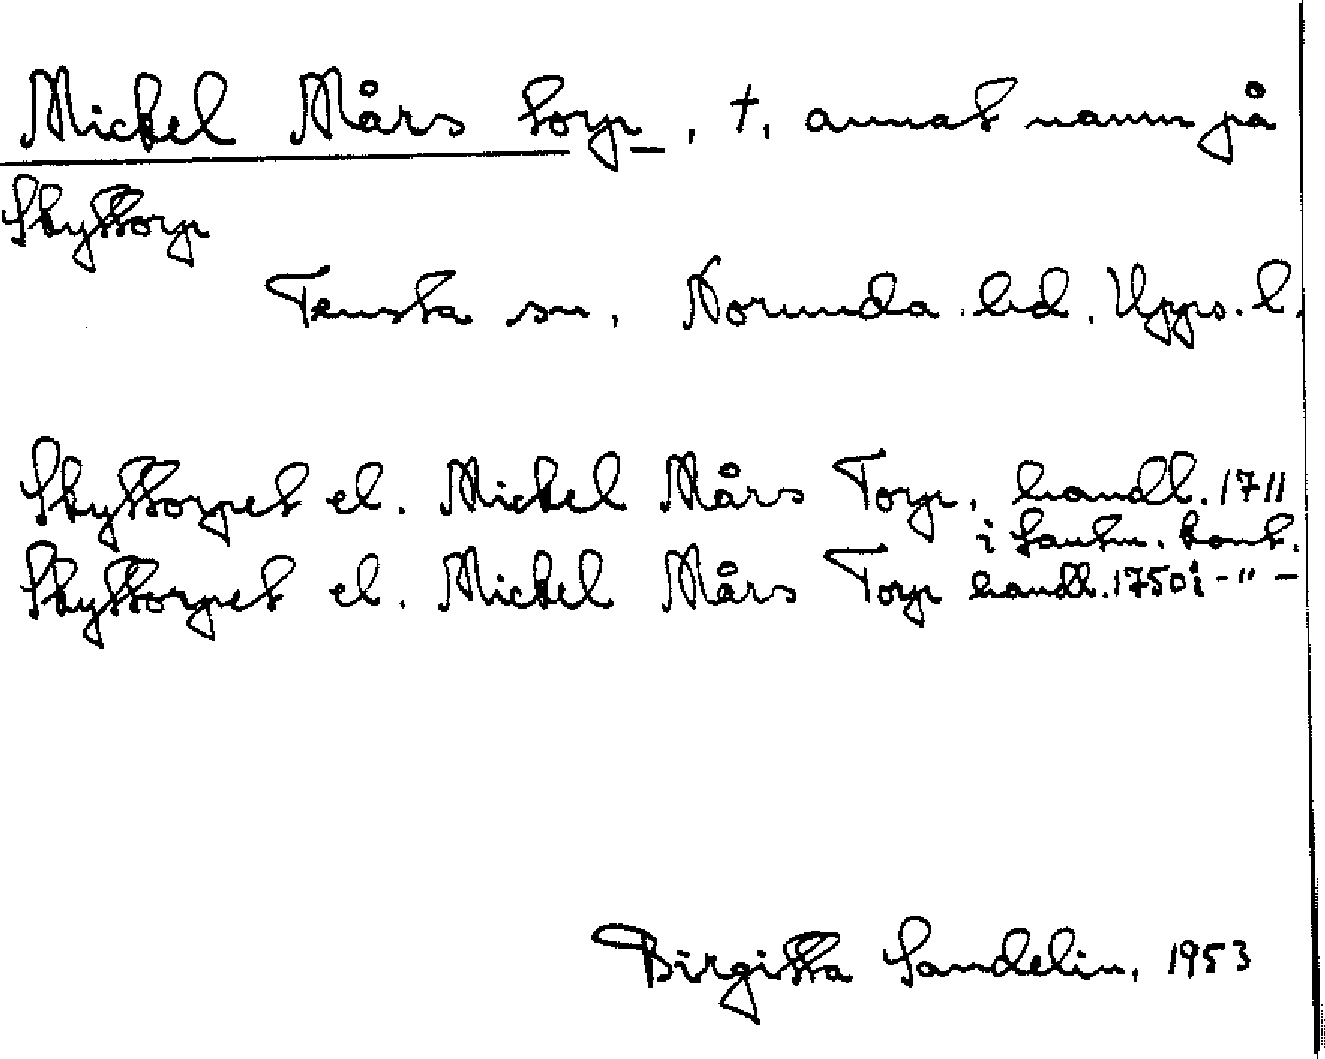 Mickel Mårs torp, †, annat namn på
Skyttorp
Tensta sn, Norunda hd, Upps. l.
Skyttorpet el. Mickel Mårs Torp, handl. 1711
i Lantm. kont.
Skyttorpet el. Mickel Mårs Torp handl. 1750 i - " -
Birgitta Sandelin, 1953